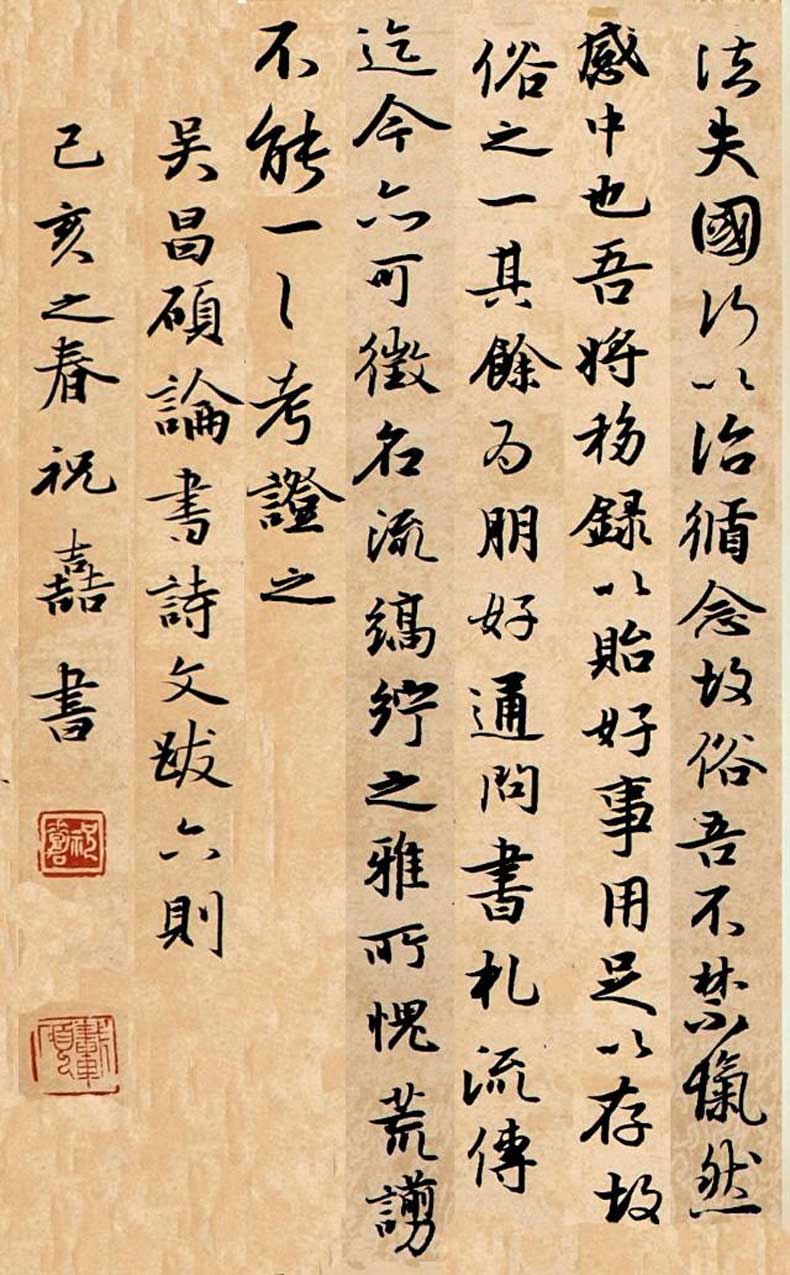 法失國所以治循念故俗吾不禁愾然
感中也吾將移錄以貽好事用足以存故
俗之一其餘為朋好通問書札流傳
迄今亦可徵名流縞紵之雅所愧荒謭
不能一一考證之
吴昌碩論書詩文跋六則
己亥之春祝嚞書